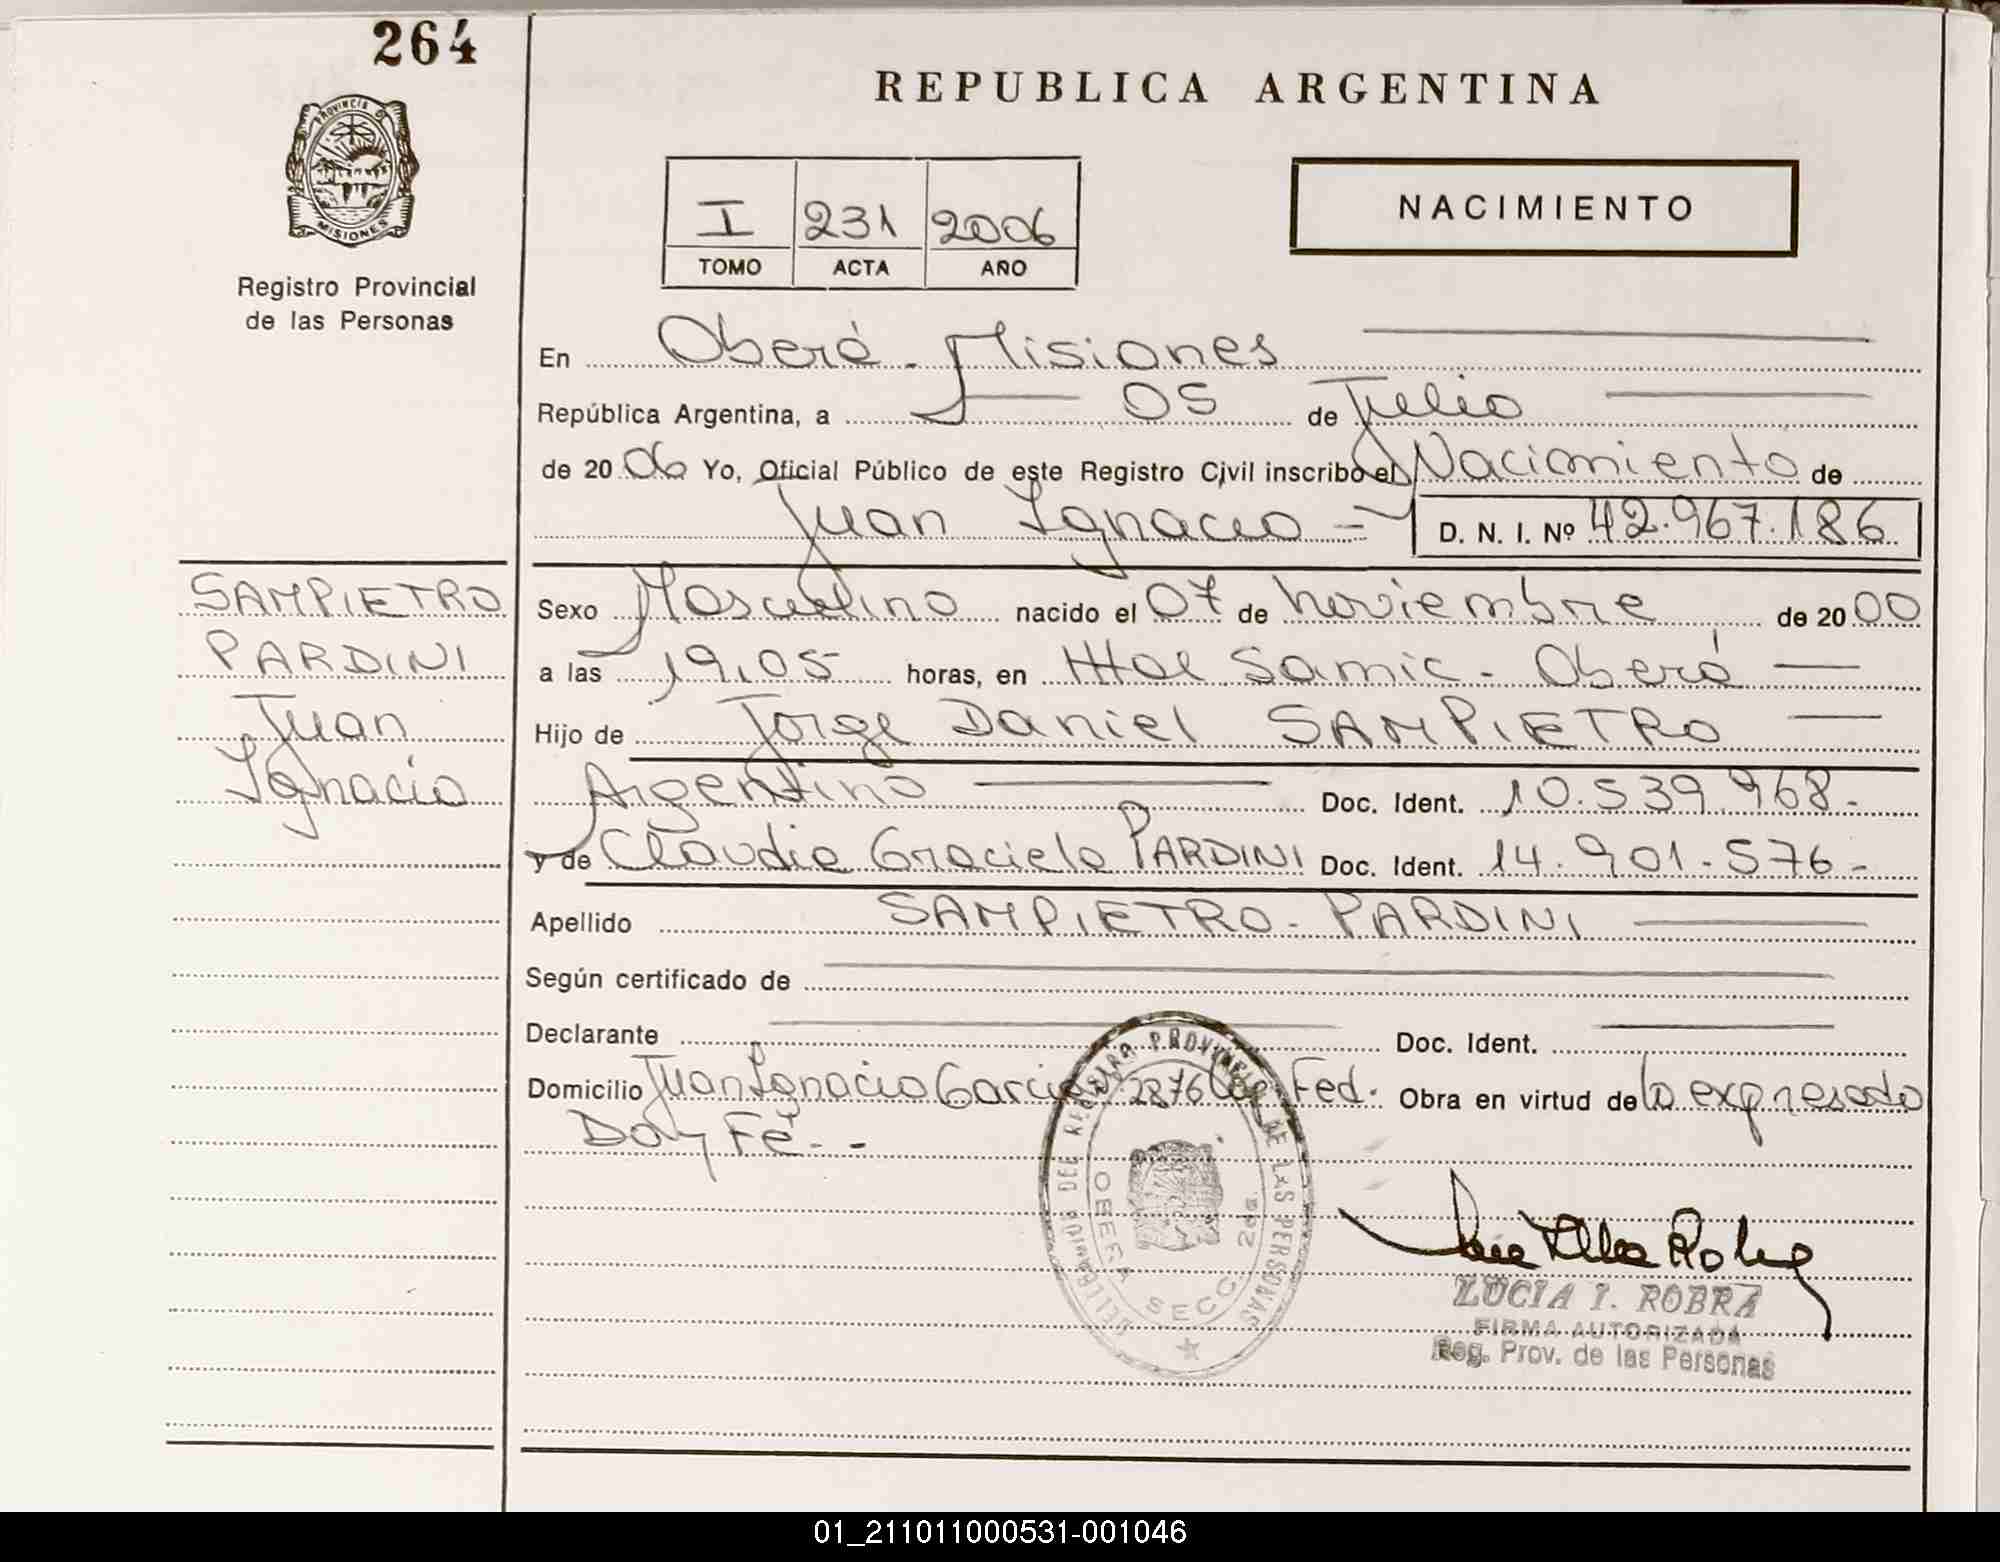 264
PROVINCIA DE
MISIONES
Registro Provincial
de las Personas
REPUBLICA ARGENTINA
I 231 2006
TOMO ACTA AÑO
NACIMIENTO
En Oberá - Misiones
República Argentina, a 05 de Julio
de 2006 Yo, Oficial Público de este Registro Civil inscribo el Nacimiento de
Juan Ignacio = D. N. I. Nº 42.967.186
SAMPIETRO
PARDINI
Juan
Ignacio
Sexo Masculino nacido el 07 de noviembre de 2000
a las 19,05 horas, en Htal Samic - Oberá
Hijo de Jorge Daniel SAMPIETRO
Argentino Doc. Ident. 10.539.968.-
y de Claudia Graciela PARDINI Doc. Ident. 14.901.576-
Apellido SAMPIETRO - PARDINI
Según certificado de
Declarante Doc. Ident.
Domicilio Juan Ignacio Garcia 2876 Fed. Obra en virtud de lo expresado
Doy Fe.--
DELEGACION DEL REGISTRO PROVINCIAL DE LAS PERSONAS
OBERA SECC. 2da.
LUCIA I. ROBRA
FIRMA AUTORIZADA
Reg. Prov. de las Personas
01_211011000531-001046